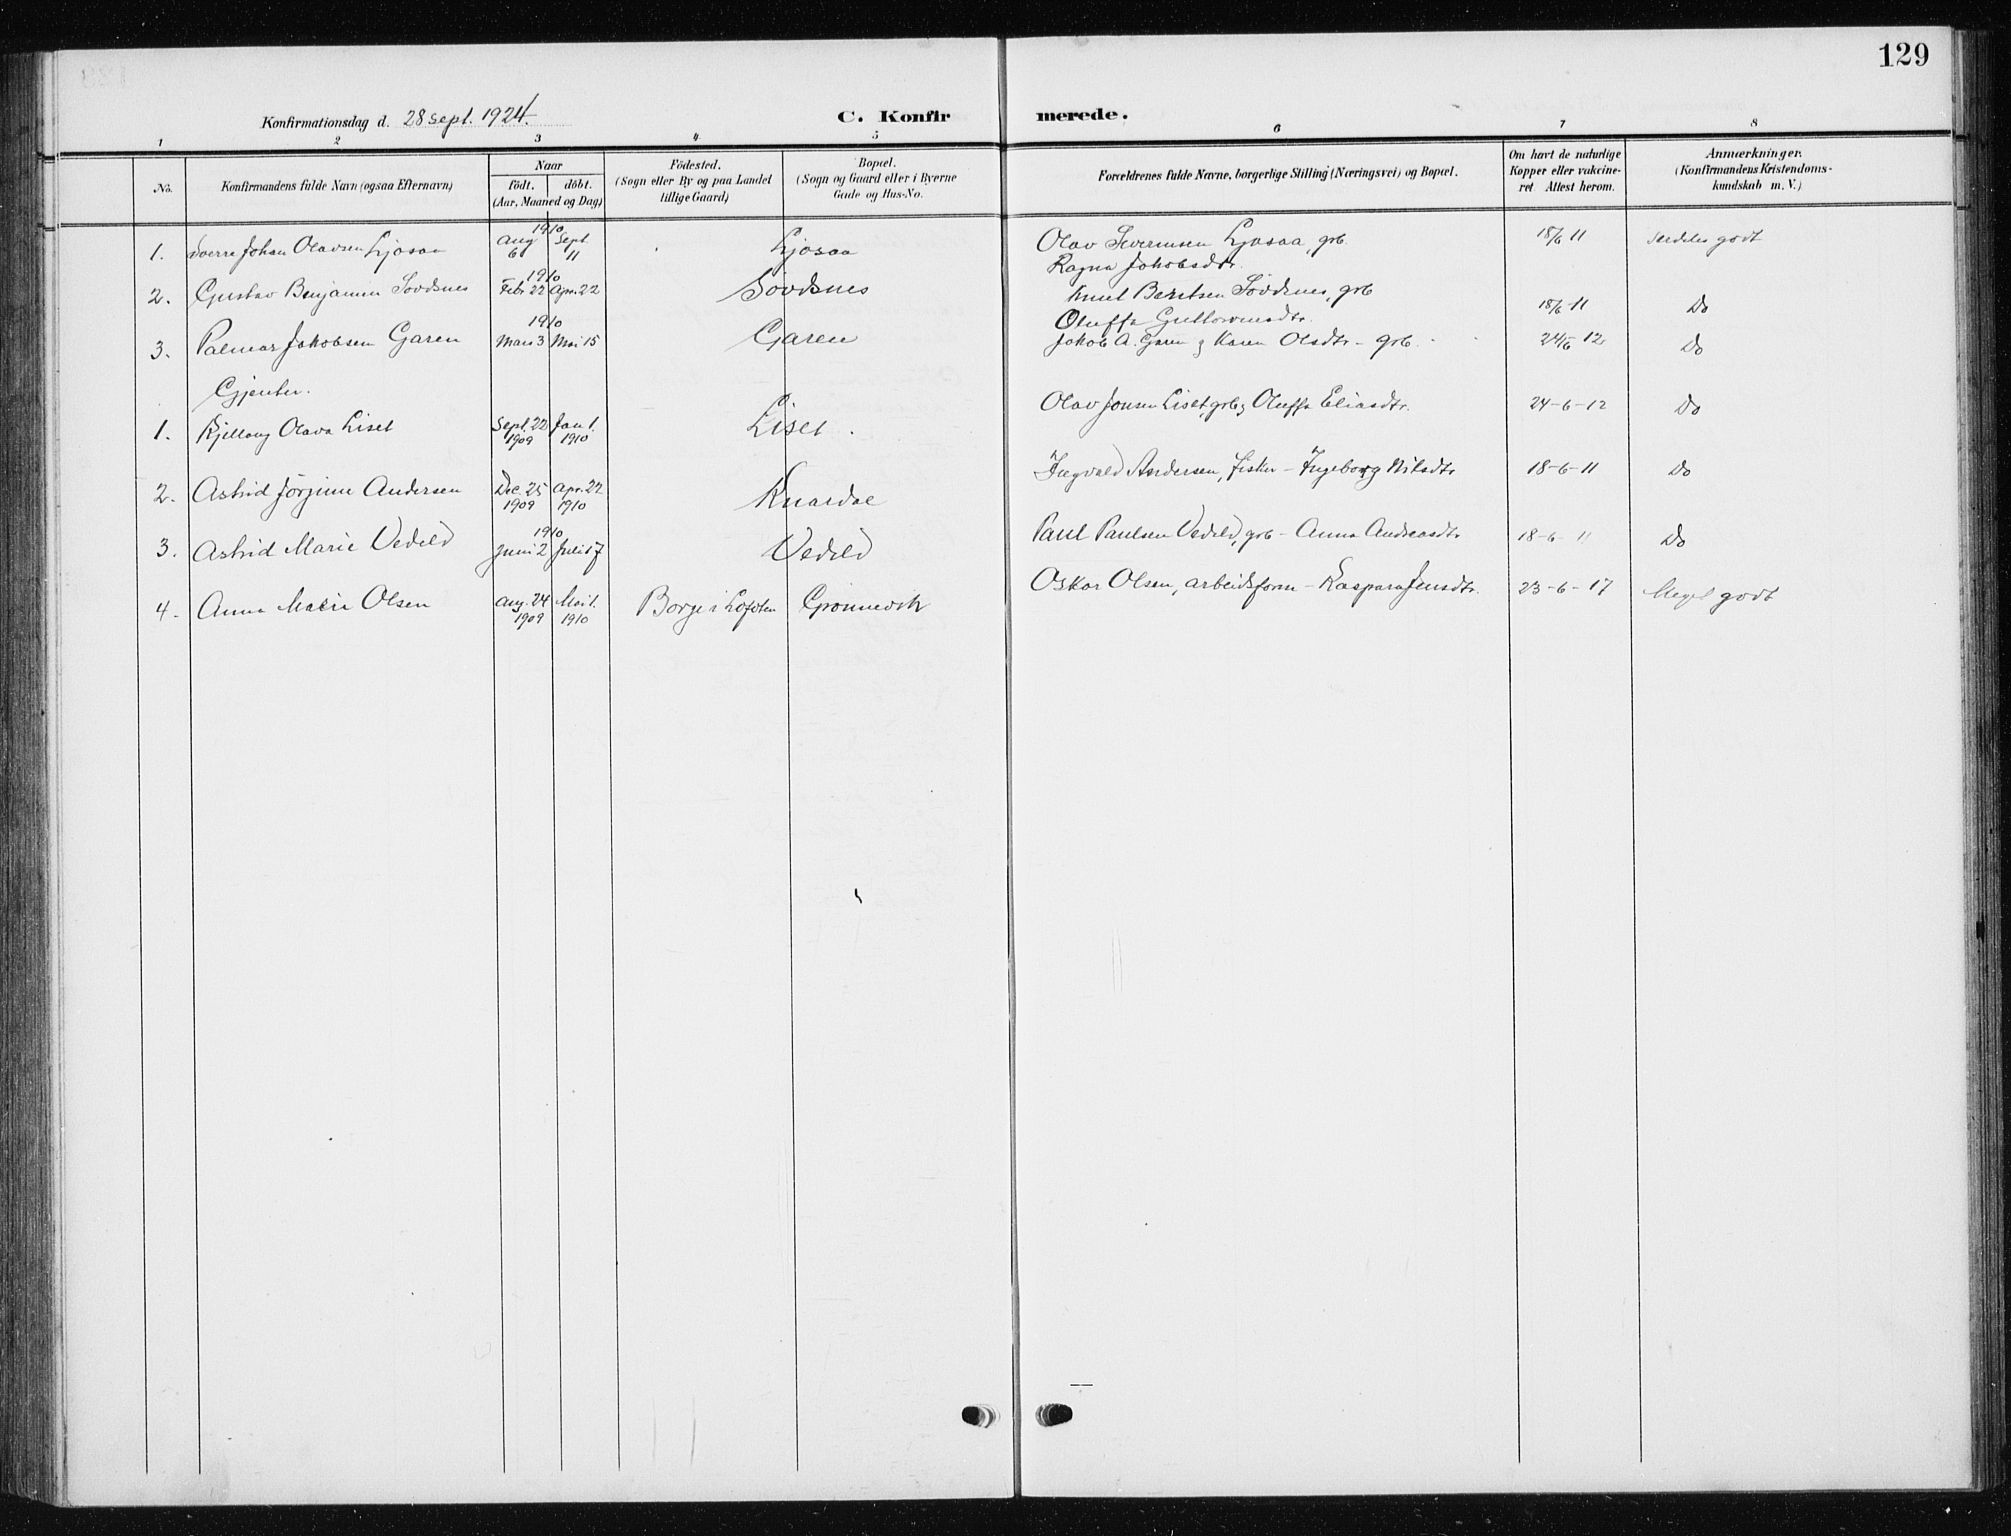 129
Konfirmationsdag d. 28 sept. 1924.
C. Konfirmerede.
1 2 3 4 5 6 7 8
No.
Konfirmandens fulde Navn (ogsaa Efternavn)
Naar
født. døbt.
(Aar, Maaned og Dag)
Födested.
(Sogn eller By og paa Landet
tillige Gaard)
Bopæl.
(Sogn og Gaard eller i Byerne
Gade og Hus-No.
Forældrenes fulde Navne, borgerlige Stilling (Næringsvei) og Bopæl.
Om havt de naturlige
Kopper eller vakcine-
ret. Attest herom.
Anmærkninger.
(Konfirmandens Kristendoms-
kundskab m. V.)
1. Sverre Johan Olavsen Ljosaa 1910 Aug 6 Sept. 11 Ljosaa Olav Severinsen Ljosaa, grb. 18/6 11 Særdeles godt
Ragna Jakobsdtr.
2. Gustav Benjamin Sövdsnes 1910 Febr 22 Apr. 22 Sövdsnes Knut Berntsen Sövdsnes, grb 18/6-11 Do
Oluffa Guttormsdtr.
3. Palmar Jakobsen Garen 1910 Mars 3 Mai 15 Garen Jakob A. Garen g Karen Olsdtr - grb. 24/6 12 Do
Gjenter.
1. Kjellaug Olava Liset Sept. 22 1909 Jan 1. 1910 Liset. Olav Jonsen Liset, grb g Oluffa Eliasdtr. 24-6-12 Do
2. Astrid Jørgine Andersen Dec. 25 1909 Apr. 22 1910 Knardal Ingvald Andersen, fisker - Ingeborg Nilsdtr 18-6-11 Do
3. Astrid Marie Vedeld 1910 Juni 2 Juli 17 Vedeld Paul Paulsen Vedeld, grb - Anna Andreasdtr 18-6-11 Do
4. Anna Marie Olsen Aug. 24 1909 Mai 1. 1910 Borge i Lofoten Grönnevik Oskar Olsen, arbeidsform - Kaspara Jensdtr. 23-6-17 Meget godt